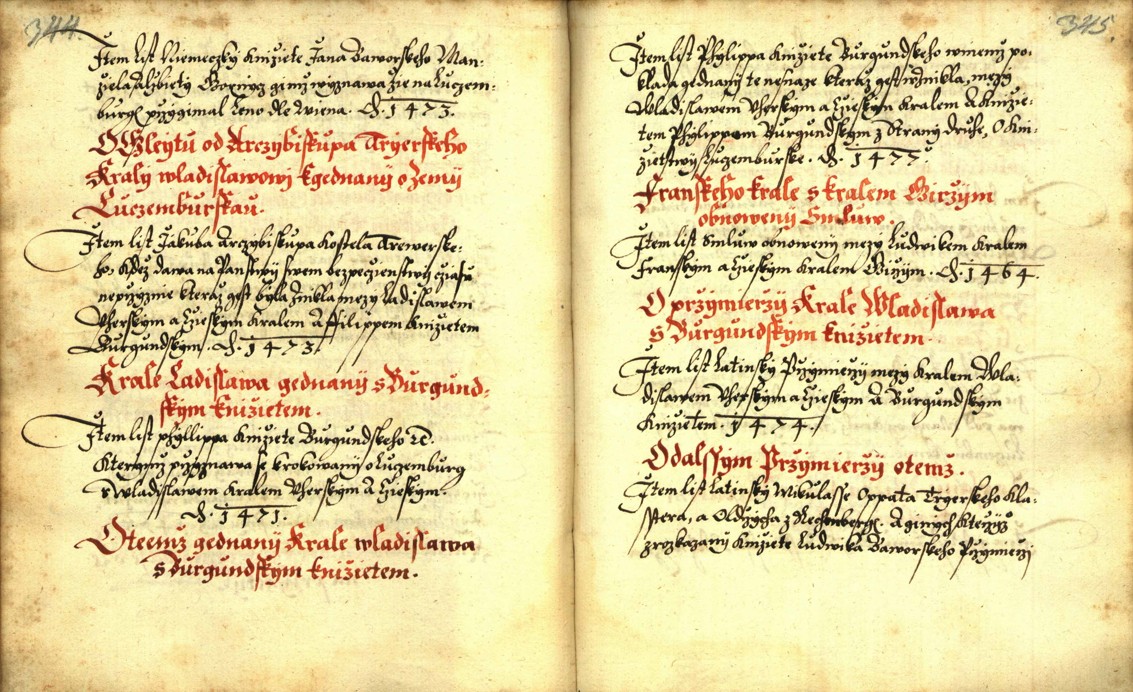 344.
Item list Niemeczky Knižiete Jana Baworskeho Man:
ziela Alzbiety Giorycz gimz wyznawa zie na Luczem:
burg przygimal Leno dle Wiena. A. 1473.
O Gleytu od Arczybiskupa Tryerskeho
Kraly wladislawowy kgednany o Zemy
Luczemburskau.
Item list Jakuba Arczybiskupa Kostela Trewerske:
ho, Kdez dawa na Panstwy swem bezpeczienstwy cziasu
neprzyznie kteraz gest byla znikla mezy Ladislawem
Vherskym a Czieskym Kralem A ffilippem Knižietem
Burgundskym. A. 1473.
Krale Ladislawa gednany s Burgund-
skym knižietem.
Item list phyllippa Knižiete Burgundskeho ꝛc.
Kterymz przyznawa se krokowany o Luczemburg
s Wladislawem Kralem Vherskym A Czieskym.
A. 1471.
O teemz gednany Krale wladislawa
s Burgundskym knižietem.
345.
Item list Phylippa Knižiete Burgundskeho winemy po-
klada gednany te nesnaze kteraz gest wznikla, mezy
Wladislawem Vherskym a Czieskym Kralem A Knižie-
tem Phylippem Burgundskym z Strany druhe, O Kni-
zietstwy Luczemburske. A. 1477.
Franskeho krale s kralem Girzym
obnoweny Smluw.
Item list Smluw obnoweny mezy Ludwikem Kralem
Franskym a Czieskym Kralem Girzym. A. 1464.
O przymierzy Krale Wladislawa
s Burgundskym knižietem.
Item list Latinsky Przymierzy mezy Kralem Wla-
dislawem Vherskym a Czieskym A Burgundskym
Knižietem. 1474.
O dalssym Przymierzy otemz.
Item list Latinsky Mikulasse Oppata Tryerskeho Kla-
sstera, a Oldrzycha z Rechenberga. A ginych kteryz
z rozkazany Knižiete Ludwika Baworskeho Przymierzi